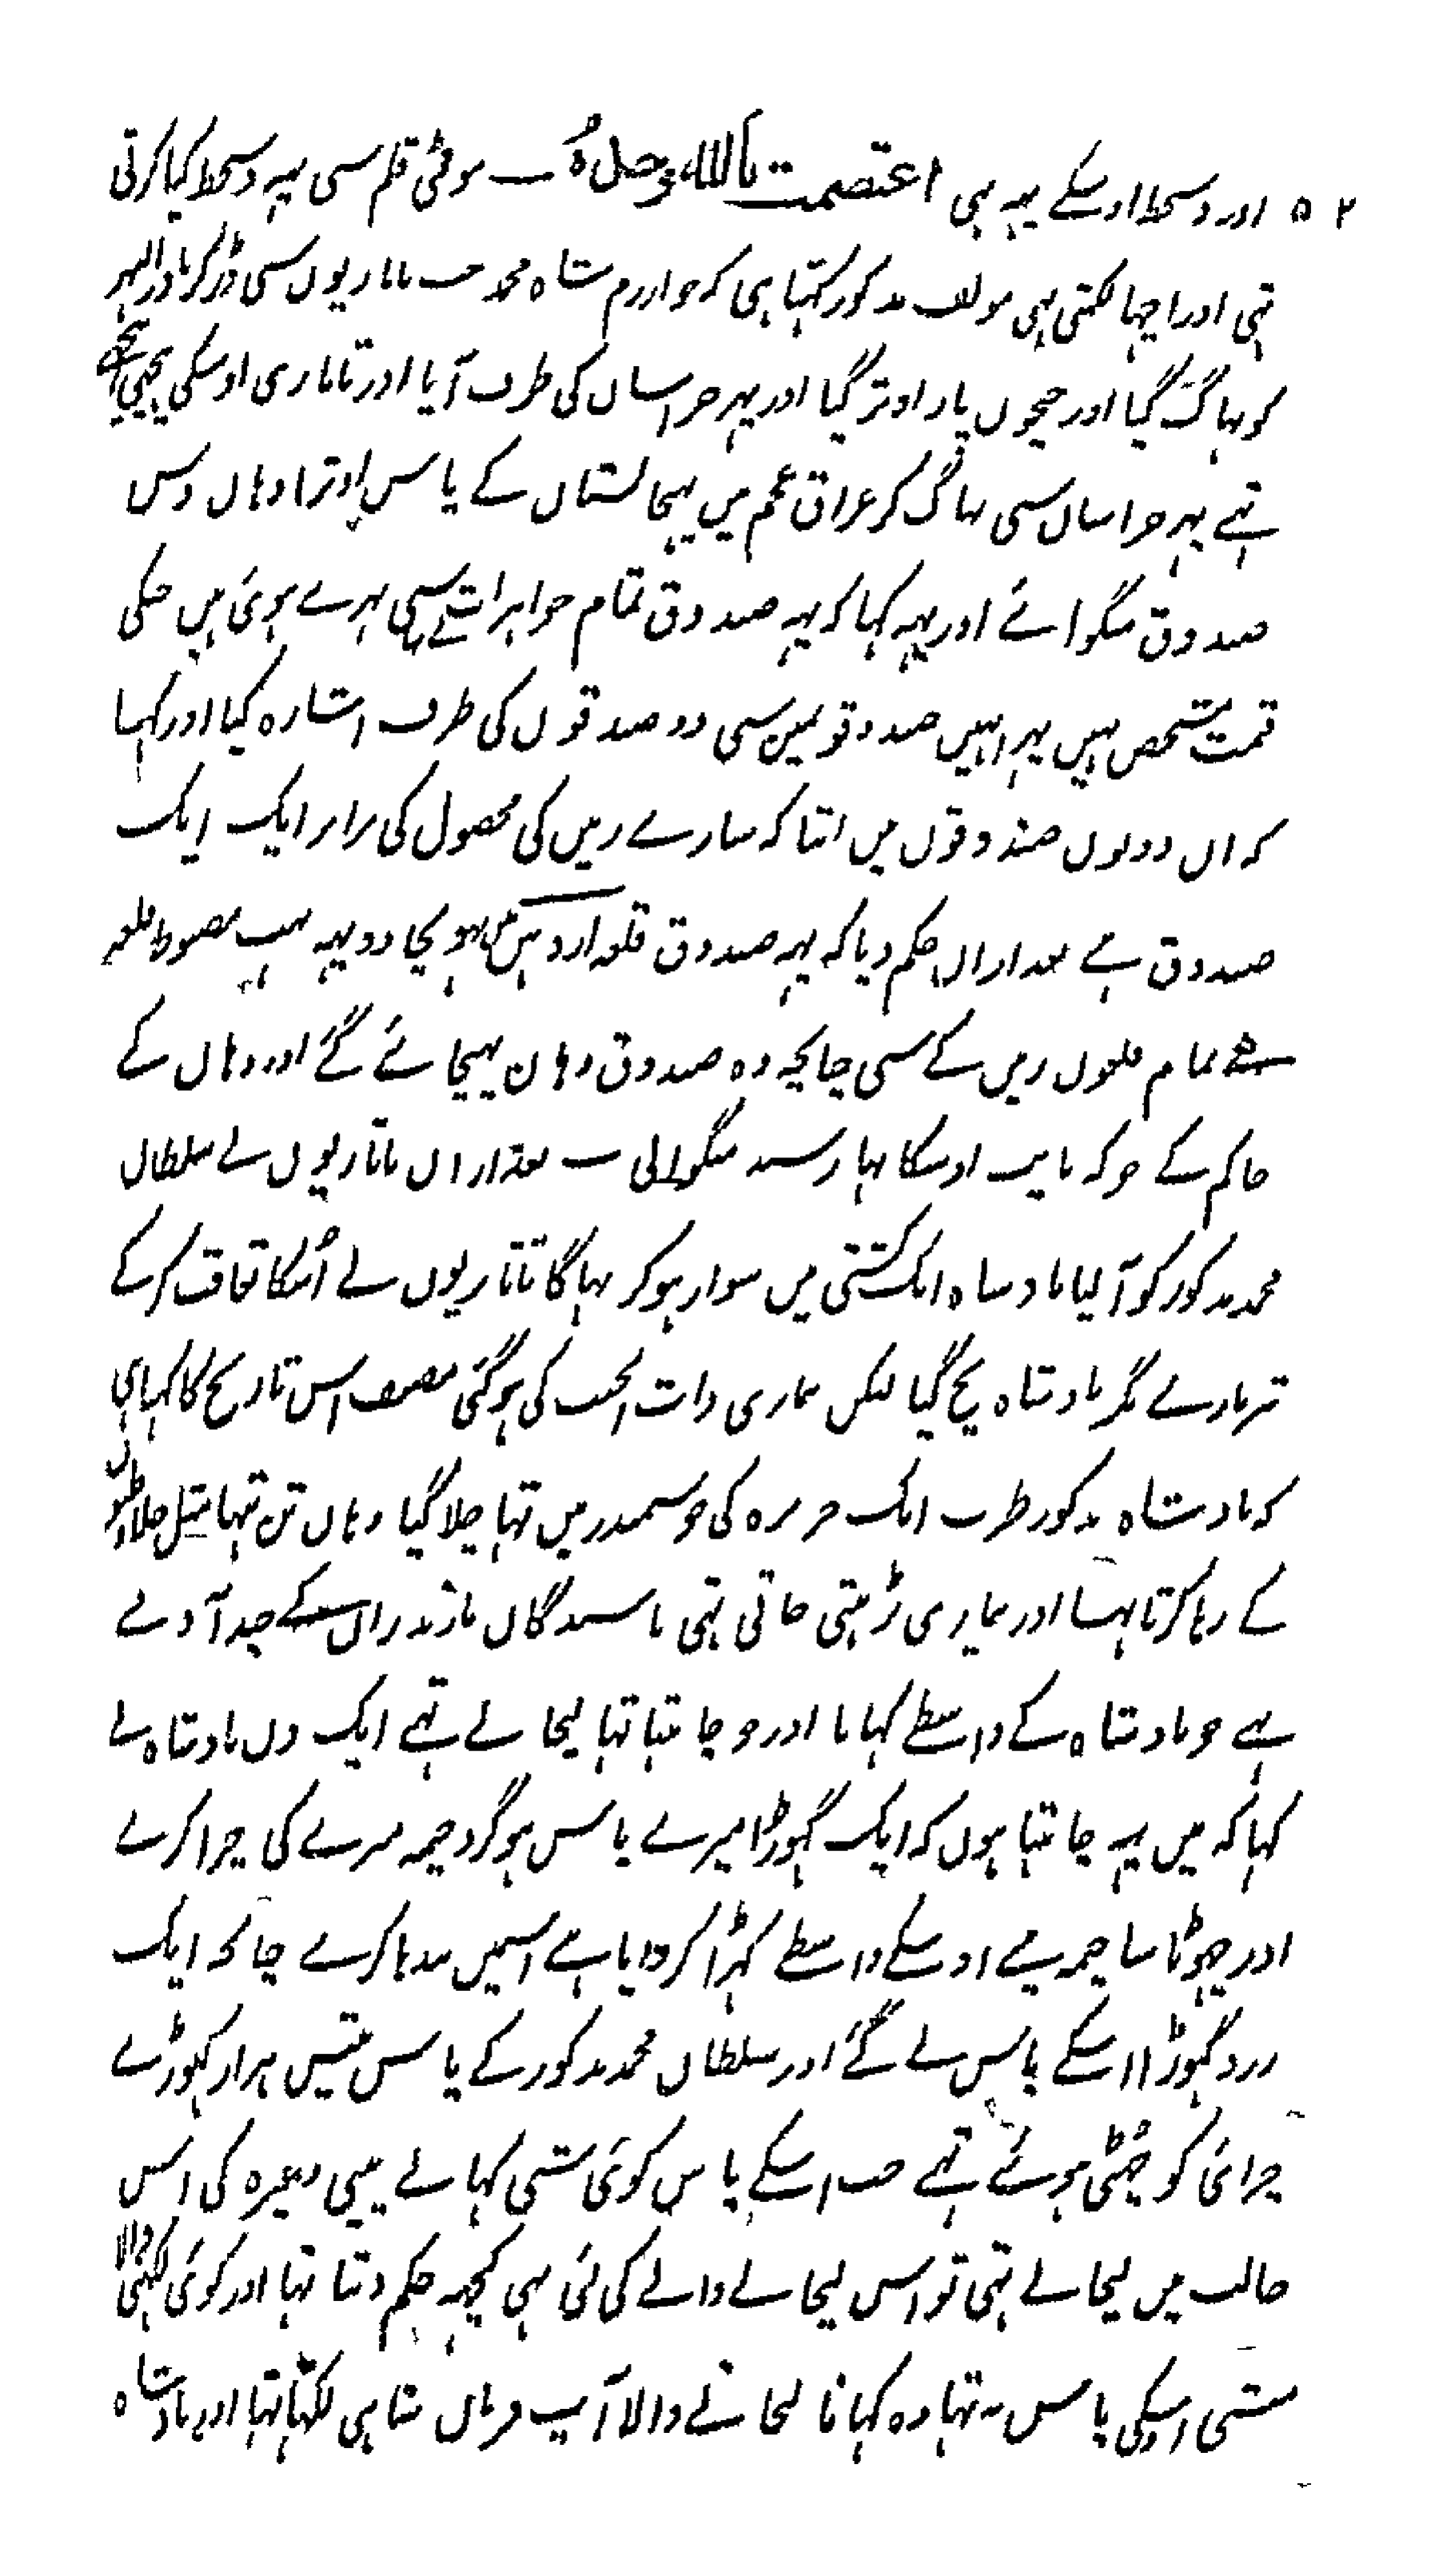 ۵۲ اور دستخط اوسکے یہہ ہی اعتصمت باللہ وحدہُ — موٹی قلم سی یہہ دستخط کیا کرتی
تہی اور اچہا لکتی تہی مولف مذکور کہتا ہی کہ خوارزم شاہ محمد جب تاتاریوں سی ڈر کر ماورالنہر
کو بہاگ گیا اور جیحوں پار اوتر گیا اور پہر خراساں کی طرف آیا اور تاتاری اوسکی پیچہی پیچہے
تہے پہر خراساں سی بہاگ کر عراق عجم میں پہنچا لستاں کے پاس اوترا وہاں دس
صندوق منگوائے اور یہہ کہا کہ یہہ صندوق تمام جواہرات سی بہرے ہوئ ہیں جنکی
قیمت مشخص نہیں پہر انہیں صندوقونمین سی دو صندقوں کی طرف اشارہ کیا اور کہا
کہ ان دونوں صندوقوں میں اتنا کہ سارے زمیں کی محصول کی برابر ایک ایک
صندوق ہے بعد ازاں حکم دیا کہ یہہ صندوق قلعہ اردہن میں پہونچا دو یہہ بہت مضبوط قلعہ
ہے تمام قلعوں زمیں کے سی چنانچہ وہ صندوق وہان پہنچائے گۓ اور وہاں کے
حاکم کے جو کہ نایب اوسکا تہا رسید منگوالی — بعد ازاں تاتاریوں نے سلطان
محمد مذکور کو آلیا بادشاہ ایک کشتی میں سوار ہو کر بہاگا تاتاریوں نے اُسکا تعاقب کر کے
تیر مارے مگر بادشاہ بچ گیا لیکن بیماری ذات الجنب کی ہو گئی مصنف اس تاریخ کا کہتا ہی
کہ بادشاہ مذکور طرف ایک جزیرہ کی جو سمندر میں تہا چلا گیا وہاں تن تنہا مثل جلاوطنوں
کے رہا کرتا تہا اور بیماری بڑہتی جاتی تہی باشندگان ماژندران کے چند آدمے
تہے جو بادشاہ کے واسطے کہانا اور جو چاہتا تہا لیجاتے تہے ایک دن بادشاہ نے
کہا کہ میں یہہ چاہتا ہوں کہ ایک گہوڑا میرے پاس ہو گرد خیمہ میرے کی چرا کرے
اور چہوٹا سا خیمہ مینے اوسکے واسطے کہڑا کروایا ہے اسمیں بندہا کرے چنانچہ ایک
زرد گہوڑا اسکے پاس لے گئے اور سلطان محمد مذکور کے پاس تیس ہزار گہوڑے
چرائ کو چُہٹی ہوئے تہے جب اسکے پاس کوئ شی کہانے پینی وغیرہ کی اس
حالت میں لیجاتے تہی تو اس لیجانے والے کی لئ ہی کچہہ حکم دیتا تہا اور کوئ لکہنی والا
منشی اوسکی پاس نہ تہا وہ کہانا لیجانے والا آپ فرمان شاہی لکہتا تہا اور بادشاہ